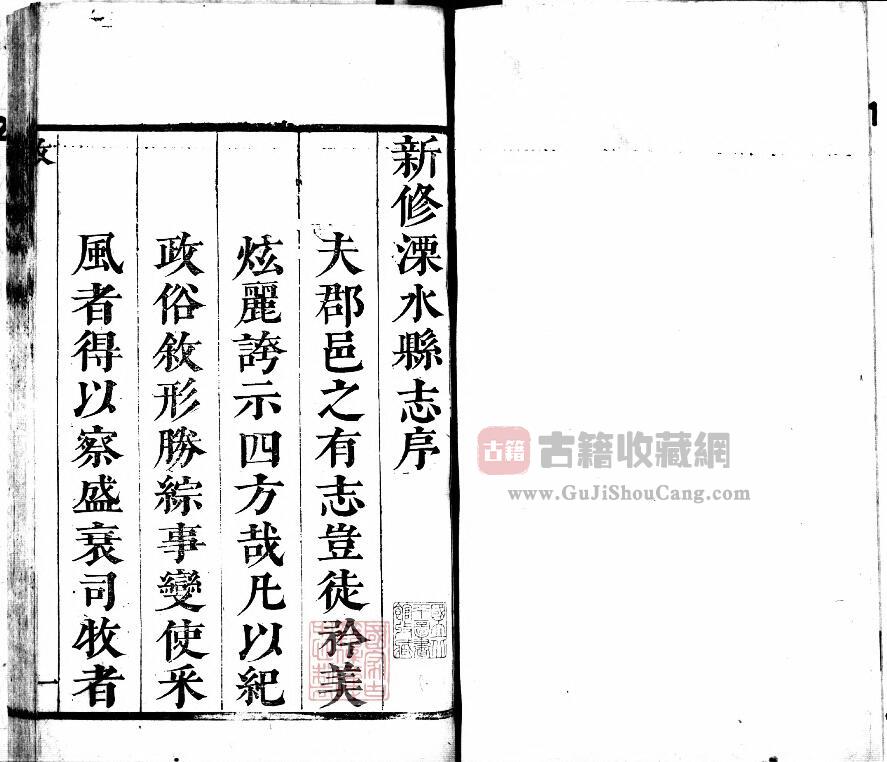 新修溧水縣志序
夫郡邑之有志豈徒矜美
炫麗誇示四方哉凡以紀
政俗敘形勝綜事變使采
風者得以察盛衰司牧者
一
古籍
古籍收藏網
www.GuJiShouCang.com
1
2